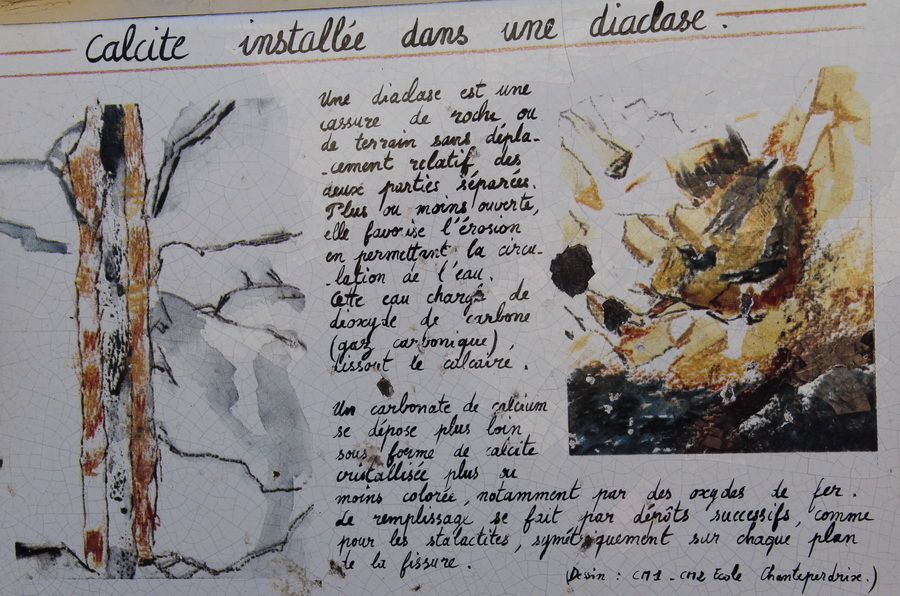 Calcite installée dans une diaclase.
Une diaclase est une
cassure de roche ou
de terrain sans dépla-
-cement relatif des
deux parties séparées.
Plus ou moins ouverte,
elle favorise l'érosion
en permettant la circu-
-lation de l'eau.
Cette eau chargé de
dioxyde de carbone
(gaz carbonique)
dissout le calcaire.
Un carbonate de calcium
se dépose plus loin
sous forme de calcite
cristallisée plus ou
moins colorée, notamment par des oxydes de fer.
Le remplissage se fait par dépôts successifs, comme
pour les stalactites, symétriquement sur chaque plan
de la fissure.
(Dessin : CM1 - CM2 Ecole Chanteperdrix.)